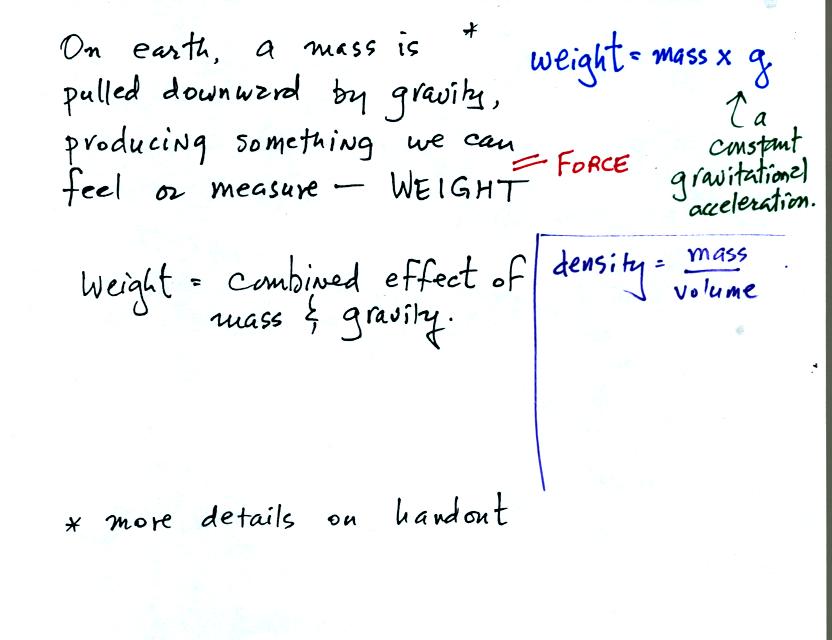 On earth, a mass is *
pulled downward by gravity,
producing something we can
feel or measure — WEIGHT
= FORCE
weight = mass x g
↑ a
constant
gravitational
acceleration.
Weight = combined effect of
mass & gravity.
density = mass
volume
* more details on handout